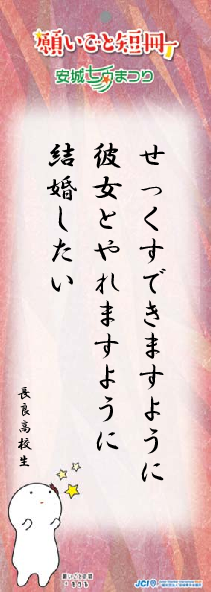 願いごと短冊
安城七夕まつり
せっくすできますように
彼女とやれますように
結婚したい
長良高校生
JCI